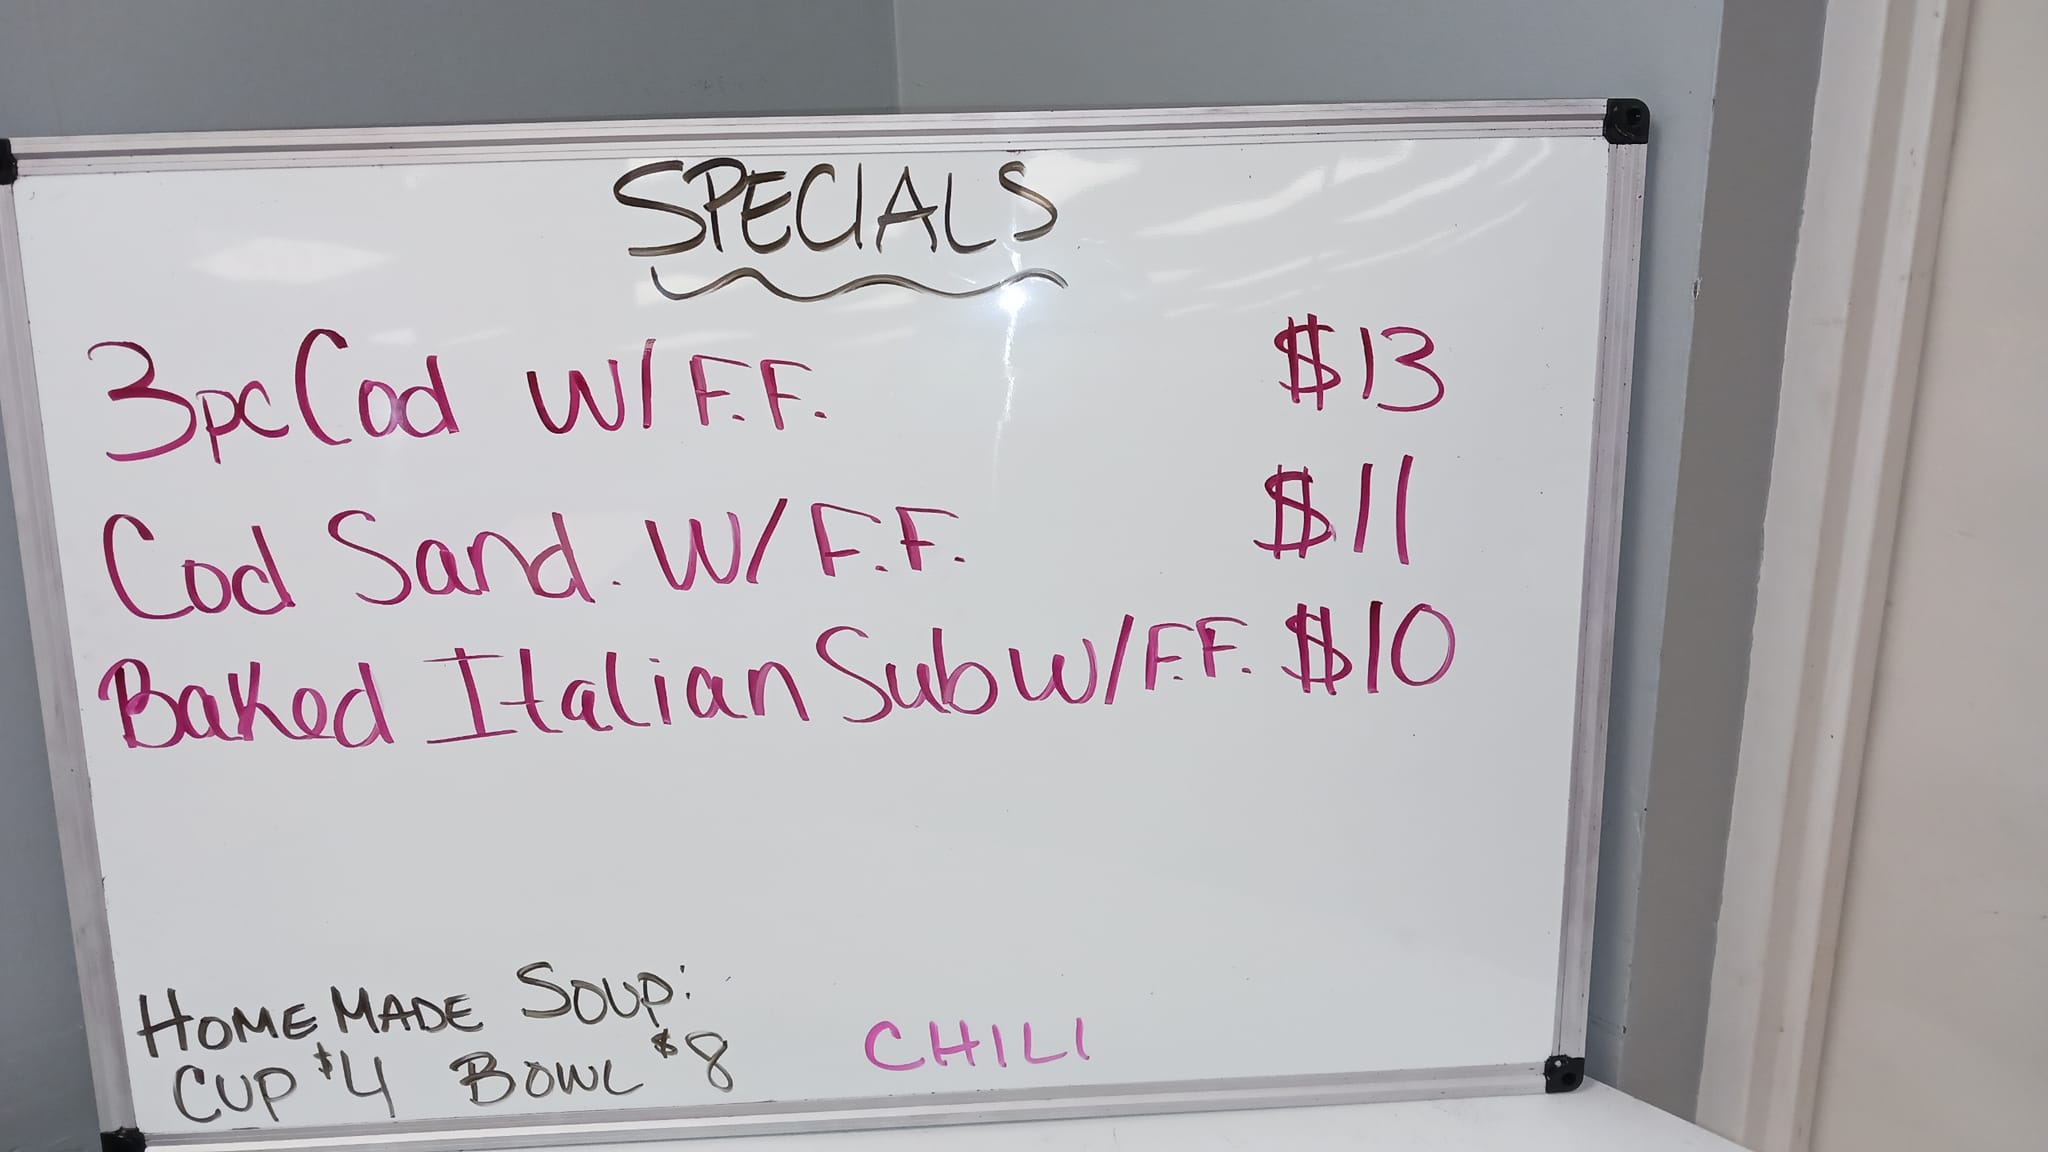 SPECIALS
3pc Cod W/ F.F. $13
Cod Sand. W/ F.F. $11
Baked Italian Sub W/ F.F. $10
HOMEMADE SOUP:
CUP $4 BOWL $8 CHILI